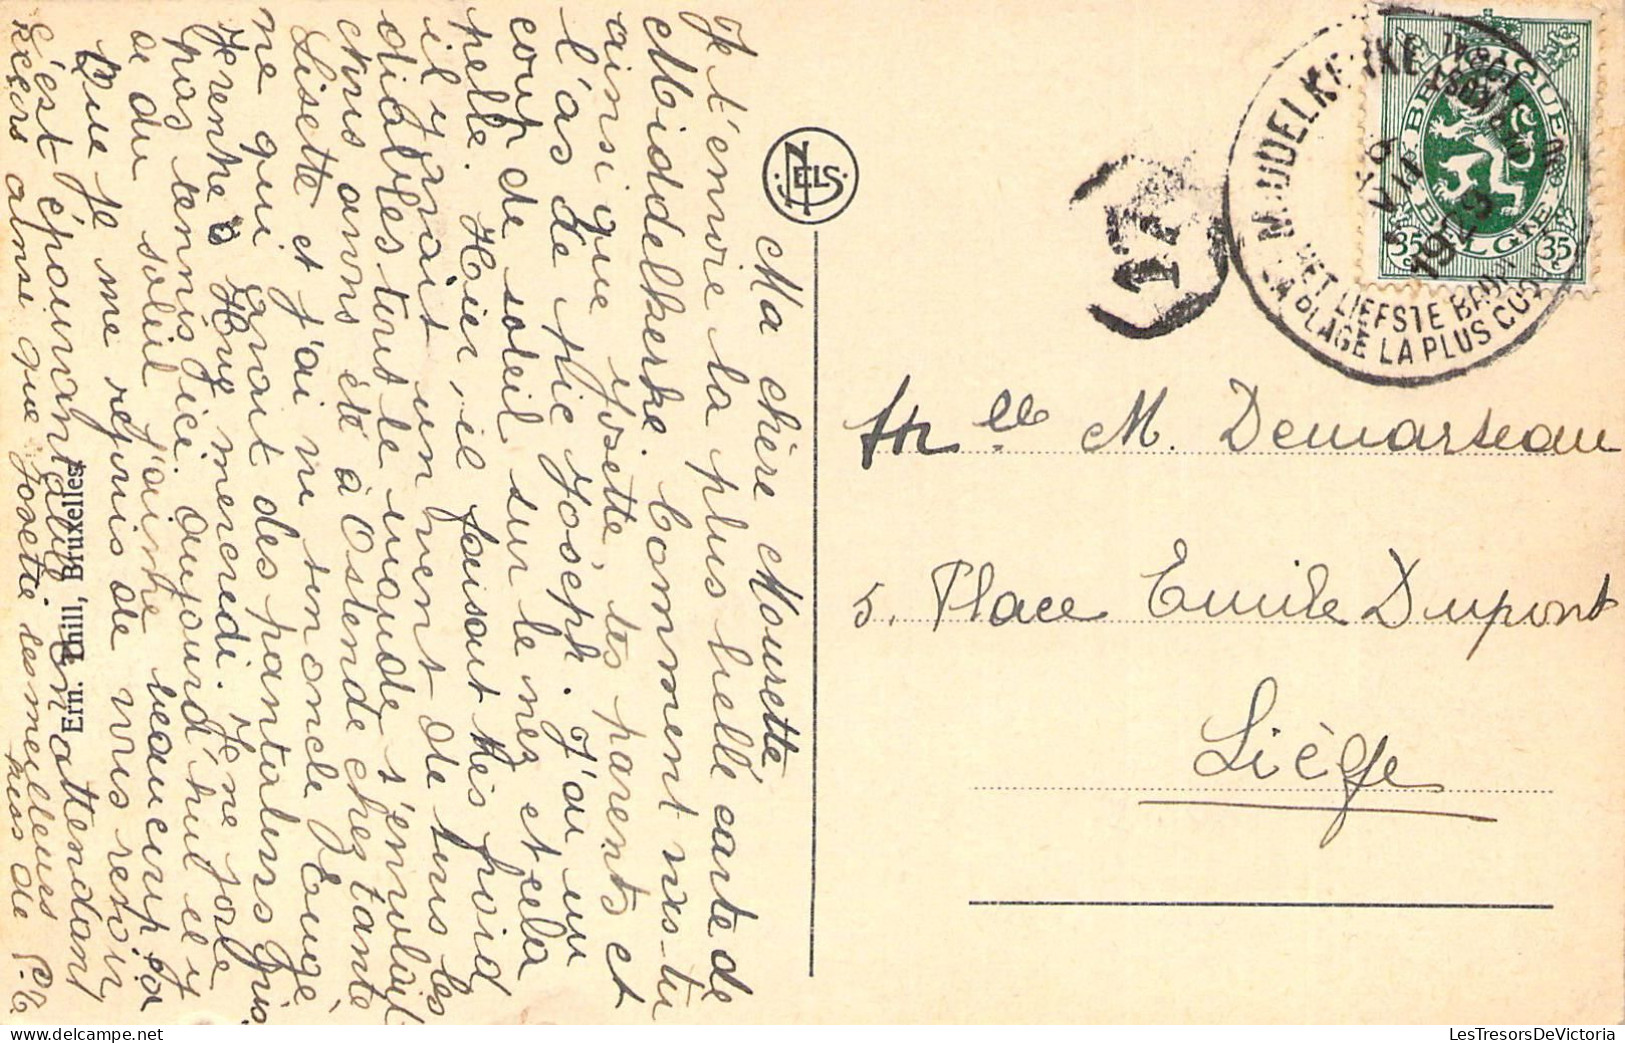 Ma chère Mourette
Je t'envoie la plus belle carte de
Middelkerke. Comment vas-tu
ainsi que Yosette, tes parents et
l'as de pic Joseph. J'ai un
coup de soleil sur le nez et cela
pelle. Hier, il faisait très froid
il y avait un vent de tous les
diables tout le monde s'ennuiait
nous avons été à Ostende chez tante
Lisette et j'ai vu mon oncle Eugè
ne qui avait des pantalons gris.
Je rentre Hong mercredi. Je ne joue
pas tennis ici. aujourd'hui il y
a du soleil j'aime beaucoup ça
Que je me réjouis de vous revoir
c'est épouvantable. En attendant
reçois ainsi que Josette les meilleures
bises de
NELS
Ern. Thill, Bruxelles
MIDDELKERKE
HET LIEFSTE BAD
LA PLAGE LA PLUS COSY
BELGIQUE
BELGIE
35 c
35 c
17
Mlle M. Demarteau
5. Place Emile Dupont
Liége
LesTresorsDeVictoria